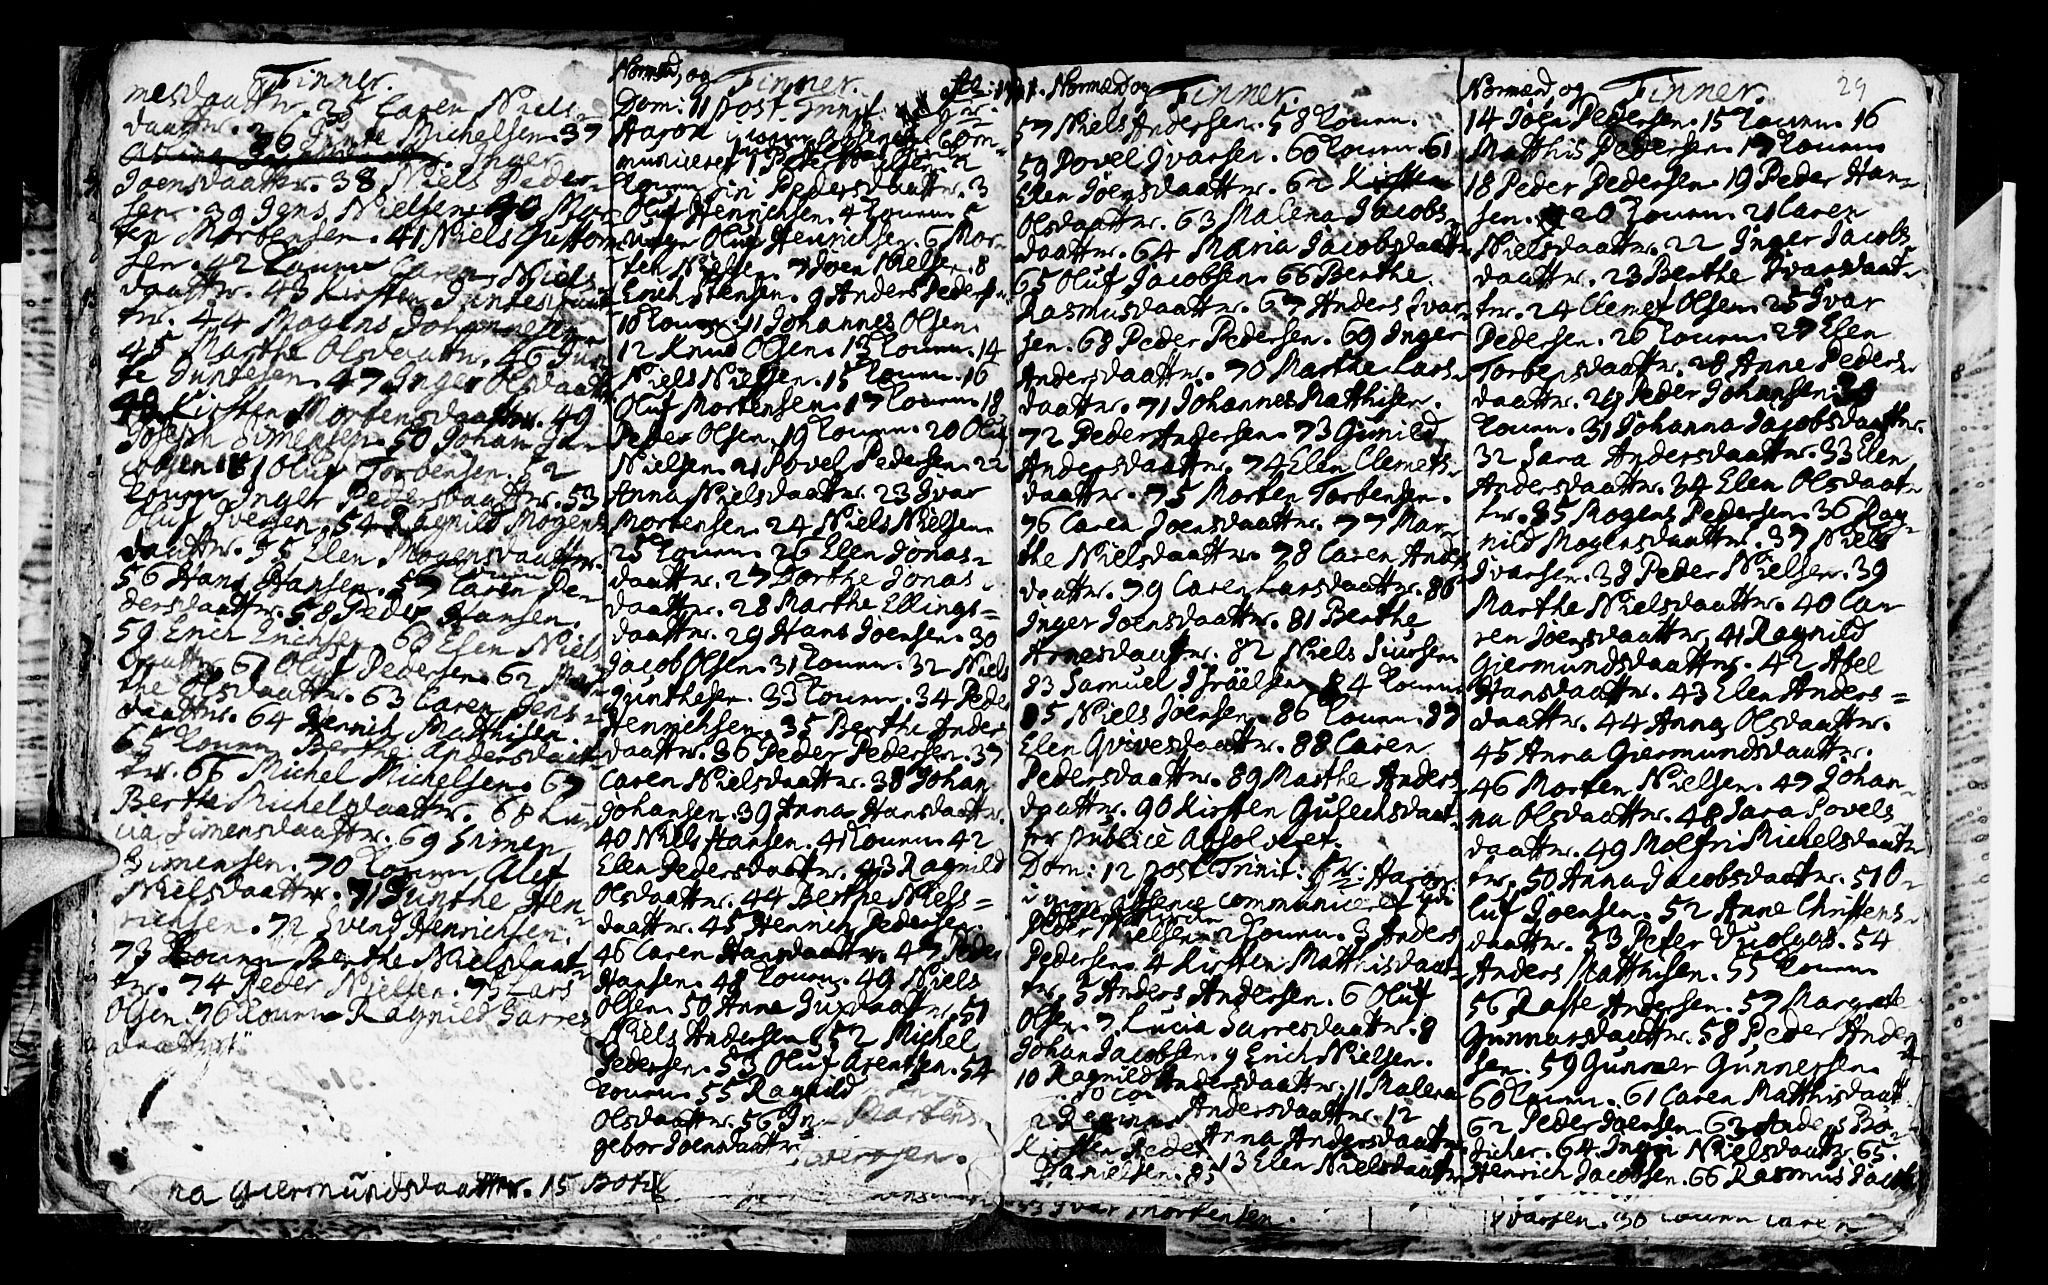 Finner.
mesdaatter. 25 Caren Niels-
daatter. 36 Junte Michelsen. 37
Inger
Joensdaatter. 38 Niels Peder-
sen. 39 Jens Nielsen. 40 Mor-
ten Mortensen. 41 Niels
sen. 42 Konen Caren Niels-
daatter. 43 Kirsten Juntesdaat-
ter. 44 Mogens Johannesen
45 Marthe Olsdaatter. 46 Jun-
te Juntesen. 47 Inger Olsdaatter
48 Kirsten Mortensdaatter. 49
Joseph Simensen. 50 Johan Ja-
cobsen. 51 Oluf Torbensen. 52
Konen Inger Pedersdaatter. 53
Oluf Iversen. 54 Ragnild Mogens-
daatter. 55 Elen Mogensdaatter.
56 Hans Hansen. 57 Konen Caren Pe-
dersdaatter. 58 Peder Hansen.
59 Erich Erichsen. 60 Elen Niels-
daatter. 61 Oluf Pedersen. 62 Mar-
the Olsdaatter. 63 Caren Jens-
daatter. 64 Henrich Matthisen.
65 Konen Berthe Andersdaat-
ter. 66 Michel Michelsen. 67
Berthe Michelsdaatter. 68 Lu-
cia Simensdaatter. 69 Simen
Simensen. 70 Konen Alet
Nielsdaatter. 71 Junthe Hen-
richsen. 72 Svend Henrichsen.
73 Konen Berthe Nielsdaat-
ter. 74 Peder Nielsen. 75 Lars
Olsen. 76 Konen Ragnild Sarres-
daatter
na Giermundsdaatter. 15 Botil
Normænd og Finner.
Dom: 11 post
Aaron
municeret
Konen Siri Pedersdaatter. 3
Oluf Henrichsen. 4 Konen. 5
Unge Oluf Henrichsen. 6 Mor-
ten Nielsen. 7 Joen Nielsen. 8
Erich Stensen. 9 Anders Peders-
10 Konen. 11 Johannes Olsen.
12 Knud Olsen. 13 Konen. 14
Niels Nielsen. 15 Konen. 16
Oluf Mortensen. 17 Konen. 18
Peder Olsen. 19 Konen. 20 Oluf
Nielsen. 21 Povel Pedersen. 22
Anna Nielsdaatter. 23 Ivar
Mortensen. 24 Niels Nielsen
25 Konen. 26 Elen Jonas-
daatter. 27 Dorthe Jonas-
daatter. 28 Marthe Ellings-
daatter. 29 Hans Joensen. 30
Jacob Olsen. 31 Konen. 32 Niels
Junthesen. 33 Konen. 34 Peder
Henrichsen. 35 Berthe Anders-
daatter. 36 Peder Pedersen. 37
Caren Nielsdaatter. 38 Johan
Johansen. 39 Anna Hansdaatter.
40 Niels Hansen. 41 Konen. 42
Elen Pedersdaatter. 43 Ragnild
Olsdaatter. 44 Berthe Niels-
daatter. 45 Henrich Pedersen.
46 Caren Hansdaatter. 47 Peder
Hansen. 48 Konen. 49 Niels
Olsen. 50 Anne daatter. 51
Niels Andersen. 52 Michel
Pedersen. 53 Oluf Arentsen. 54
Konen. 55 Ragnild
Olsdaatter. 56 In-
gebor Joensdaatter
Normænd og Finner.
57 Niels Andersen. 58 Konen.
59 Povel Ivarsen. 60 Konen. 61
Elen Joensdaatter. 62 Kirsten
Olsdaatter. 63 Malena Jacobs-
daatter. 64 Maria Jacobsdaatter
65 Oluf Jacobsen. 66 Berthe
Rasmusdaatter. 67 Anders Ivar-
sen. 68 Peder Pedersen. 69 Inger
Andersdaatter. 70 Marthe Lars-
daatter. 71 Johannes Matthisen.
72 Peder Andersen. 73 Gunild
Andersdaatter. 74 Elen Clemets-
daatter. 75 Morten Torbensen.
76 Caren Joensdaatter. 77 Mar-
the Nielsdaatter. 78 Caren Anders-
daatter. 79 Caren Larsdaatter. 80
Inger Joensdaatter. 81 Berthe
Arnesdaatter. 82 Niels Siursen
83 Samuel Israelsen. 84 Konen
85 Niels Joensen. 86 Konen. 87
Elen daatter. 88 Caren
Pedersdaatter. 89 Marthe Anders-
daatter. 90 Kirsten daat-
ter publicè Absolveret.
Dom: 12 post Trinit: Hr: Aaron
communiceret
Peder Nielsen. 2 Konen. 3 Anders
Pedersen. 4 Kirsten Matthisdaat-
ter. 5 Anders Andersen. 6 Oluf
Olsen. 7 Lucia Sarresdaatter. 8
Johan Jacobsen. 9 Erich Nielsen.
10 Ragnild Andersdaatter. 11 Malena
Andersdaatter. 12
Anna Andersdaatter.
13 Elen Nielsdaatter
Ivar Mortensen.
Normænd og Finner. 29
14 Joen Pedersen. 15 Konen. 16
Matthis Pedersen. 17 Konen
18 Peder Pedersen. 19 Peder Han-
sen. 20 Konen. 21 Caren
Nielsdaatter. 22 Inger Jacobs-
daatter. 23 Berthe Ivarsdaat-
ter. 24 Clemet Olsen. 25 Ivar
Pedersen. 26 Konen. 27 Elen
Torbensdaatter. 28 Anne Peders-
daatter. 29 Peder Johansen. 30
Konen. 31 Johanna Jacobsdaatter.
32 Sara Andersdaatter. 33 Elen
Andersdaatter. 34 Elen Olsdaat-
ter. 35 Mogens Pedersen. 36 Rag-
nild Mogensdaatter. 37 Niels
Ivarsen. 38 Peder Nielsen. 39
Marthe Nielsdaatter. 40 Ca-
ren Joensdaatter. 41 Ragnild
Giermundsdaatter. 42 Abel
Hansdaatter. 43 Elen Anders-
daatter. 44 Anna Olsdaatter.
45 Anna Giermundsdaatter.
46 Morten Nielsen. 47 Johan-
na Olsdaatter. 48 Sara Povels-
daatter. 49 Molfri Michelsdaat-
ter. 50 Anna Jacobsdaatter. 51 O-
luf Joensen. 52 Anne Christens-
daatter. 53 Peter 54
Anders Matthisen. 55 Konen
56 Raste Andersen. 57 Margrete
Gunnarsdaatter. 58 Peder Ander-
sen. 59 Gunner Gunnersen
60 Konen. 61 Caren Matthisdaatt.
62 Peder Joensen. 63 Anders Bö-
dicher. 64 Inger Nielsdaatter. 65
Henrich Jacobsen. 66 Rasmus Jacobs
Ivarsen. 30 Konen Caren